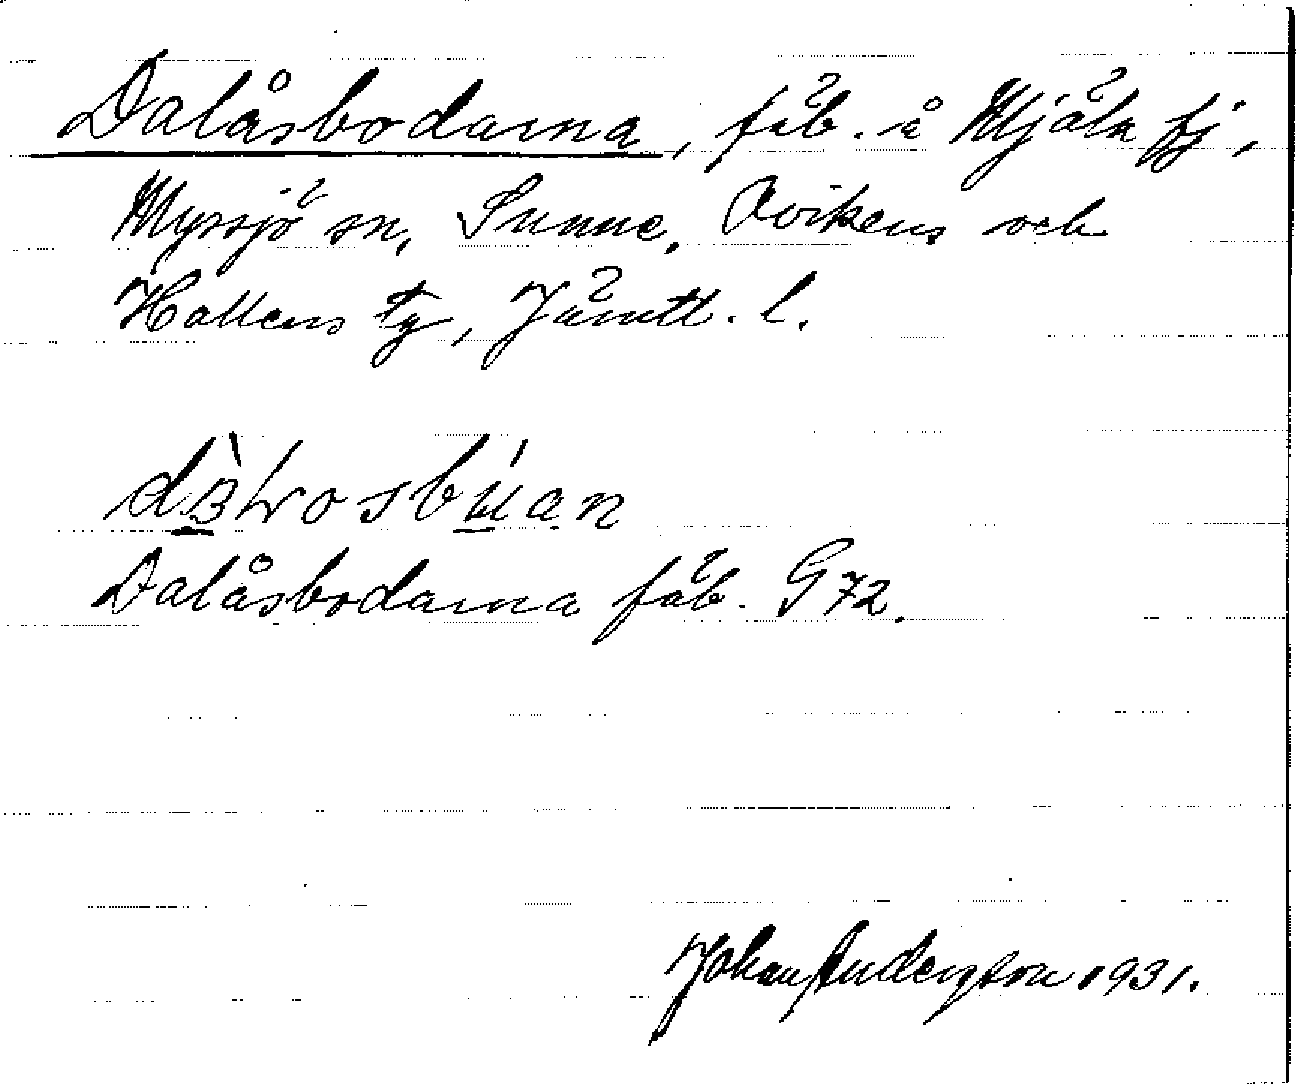 Dalåsbodarna, fäb. å Mjäla fj,
Myssjö sn, Sunne, Ovikens och
Hallens tg, Jämtl. l.
Dalåsbodarna fäb. G 72.
Johan Anderzson 1931.